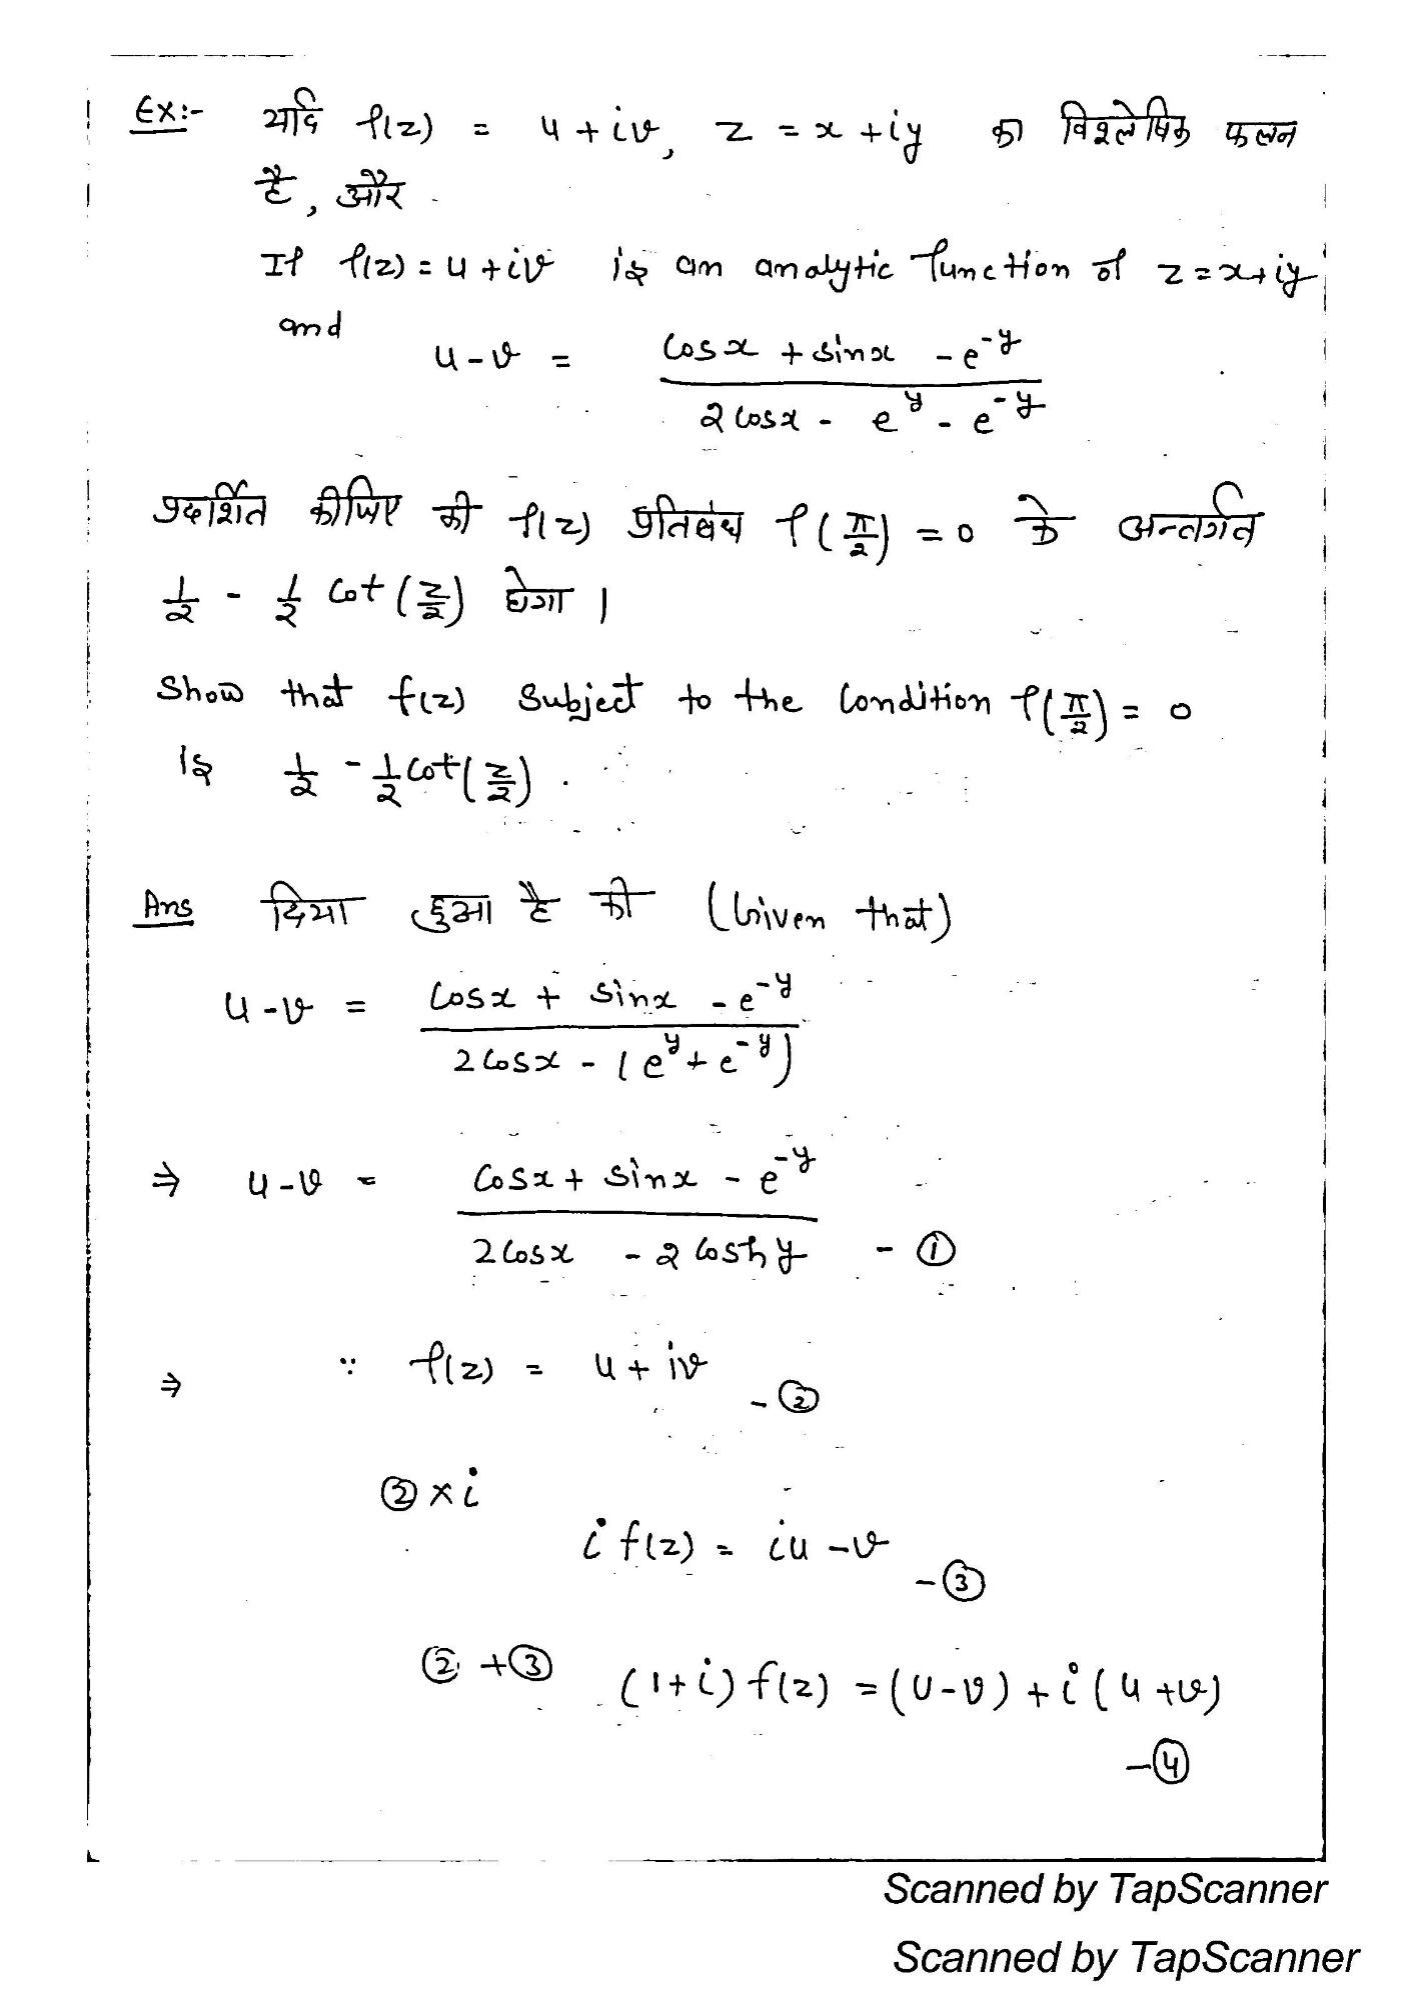 Ex:- यदि f(z) = u + iv, z = x + iy का विश्लेषिक फलन
है, और
If f(z) = u + iv is an analytic function of z = x + iy
and
u - v = (cos x + sin x - e^-y) / (2 cos x - e^y - e^-y)
प्रदर्शित कीजिए की f(z) प्रतिबंध f(π/2) = 0 के अन्तर्गत
1/2 - 1/2 cot(z/2) होगा।
Show that f(z) Subject to the Condition f(π/2) = 0
is 1/2 - 1/2 cot(z/2).
Ans दिया हुआ है की (Given that)
u - v = (cos x + sin x - e^-y) / (2 cos x - (e^y + e^-y))
⇒ u - v = (cos x + sin x - e^-y) / (2 cos x - 2 cosh y) - ①
⇒ ∵ f(z) = u + iv - ②
② × i
i f(z) = iu - v - ③
② + ③ (1+i) f(z) = (u - v) + i(u + v)
- ④
Scanned by TapScanner
Scanned by TapScanner